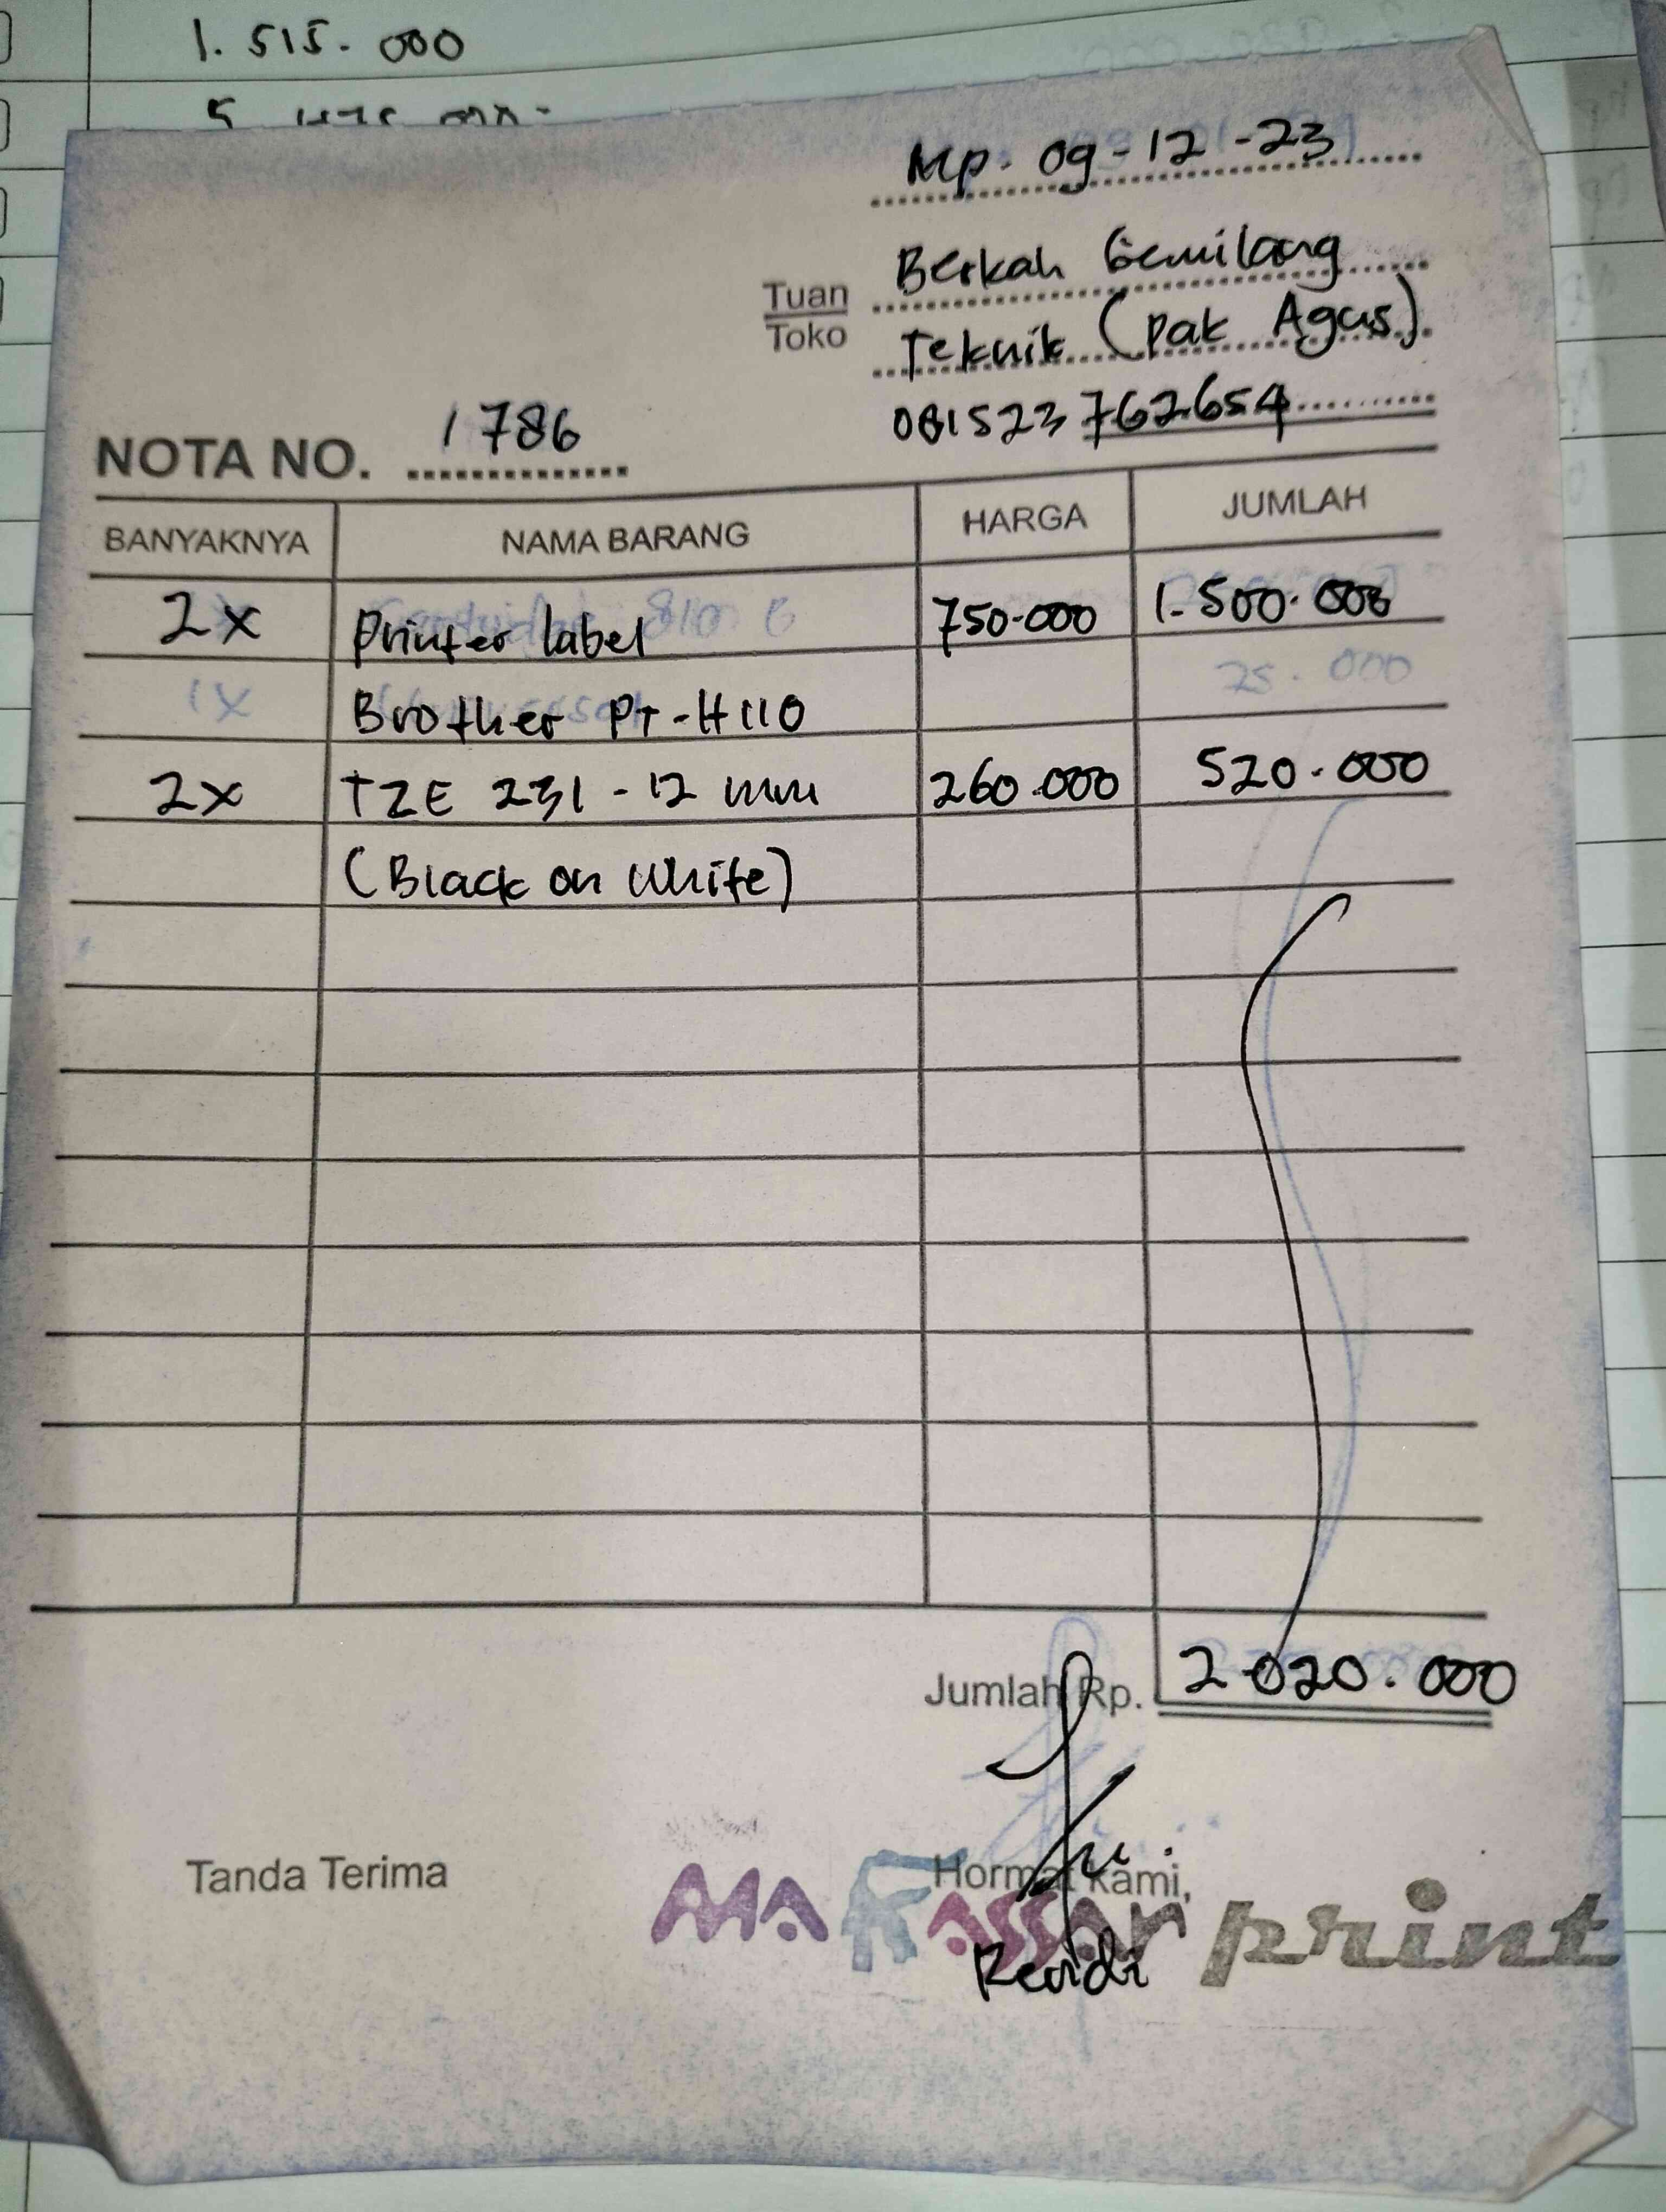 1. 515. 000
Mp. 09-12-23
Tuan
Toko
Berkah Gemilang
Teknik (Pak Agus)
081523762654
NOTA NO. 1786
BANYAKNYA NAMA BARANG HARGA JUMLAH
2x Printer label 750.000 1.500.000
1x Brother PT-H110 75.000
2x TZE 231-12 mm 260.000 520.000
(Black on White)
Jumlah Rp. 2.020.000
Tanda Terima Hormat Kami,
MAKASSAR print
Rendi